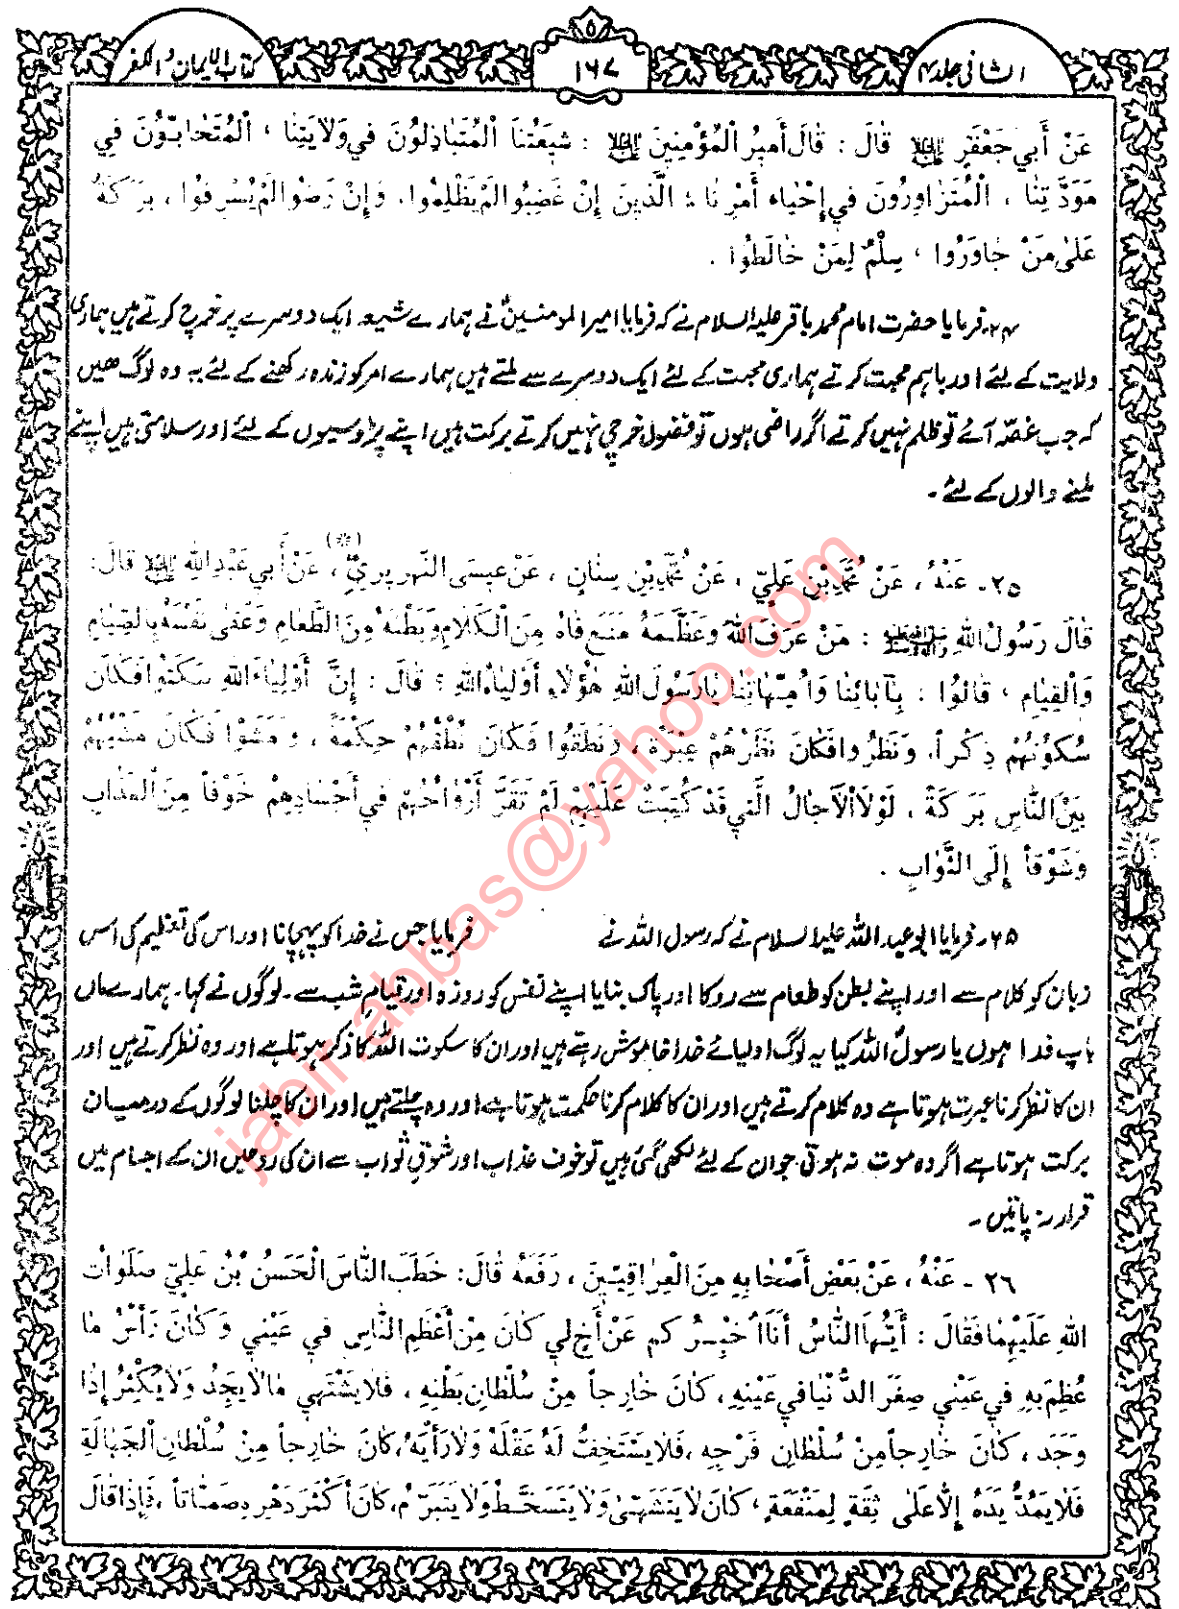 الشانی جلد ۴
۱۶۷
کتاب الایمان و الکفر
عَنْ أَبي جَعْفَرٍ عليه السلام قالَ : قالَ أَميرُ الْمُؤْمِنينَ عليه السلام : شيعَتُنَا الْمُتَباذِلُونَ في وَلايَتِنا ، الْمُتَحابّونَ في
مَوَدَّتِنا ، الْمُتَزاوِرُونَ في إحْياءِ أَمْرِنا ؛ الَّذينَ إنْ غَضِبُوا لَمْ يَظْلِمُوا، وَإنْ رَضُوا لَمْ يُسْرِفُوا ، بَرَكَةٌ
عَلىٰ مَنْ جاوَرُوا ، سِلْمٌ لِمَنْ خالَطُوا .
۲۴۔ فرمایا حضرت امام محمد باقر علیہ السلام نے کہ فرمایا امیر المومنینؑ نے ہمارے شیعہ ایک دوسرے پر خرچ کرتے ہیں ہماری
ولایت کے لئے اور باہم محبت کرتے ہماری محبت کے لئے ایک دوسرے سے ملتے ہیں ہمارے امر کو زندہ رکھنے کے لئے یہ وہ لوگ ھیں
کہ جب غصّہ آئے تو ظلم نہیں کرتے اگر راضی ہوں تو فضول خرچی نہیں کرتے برکت ہیں اپنے پڑوسیوں کے لئے اور سلامتی ہیں اپنے
ملنے والوں کے لئے ۔
۲۵ - عَنْهُ ، عَنْ مُحَمَّدِ بْنِ عَلِيٍّ ، عَنْ مُحَمَّدِ بْنِ سِنانٍ ، عَنْ عيسَى النَّهْرِيريِّ (*) ، عَنْ أَبي عَبْدِ اللهِ عليه السلام قالَ:
قالَ رَسُولُ اللهِ صلى الله عليه وآله وسلم : مَنْ عَرَفَ اللهَ وَعَظَّمَهُ مَنَعَ فاهُ مِنَ الْكَلامِ وَبَطْنَهُ مِنَ الطَّعامِ وَعَفىٰ نَفْسَهُ بِالصِّيامِ
وَالْقِيامِ ، قالُوا : بِآبائِنا وَأُمَّهاتِنا يا رَسُولَ اللهِ هٰؤُلاءِ أَوْلِياءُ اللهِ ؟ قالَ : إنَّ أَوْلِياءَ اللهِ سَكَتُوا فَكانَ
سُكُوتُهُمْ ذِكْراً، وَنَظَرُوا فَكانَ نَظَرُهُمْ عِبْرَةً ، وَنَطَقُوا فَكانَ نُطْقُهُمْ حِكْمَةً ، وَمَشَوْا فَكانَ مَشْيُهُمْ
بَيْنَ النّاسِ بَرَكَةً ، لَوْلَا الْآجالُ الَّتي قَدْ كُتِبَتْ عَلَيْهِمْ لَمْ تَقَرَّ أَرْواحُهُمْ في أَجْسادِهِمْ خَوْفاً مِنَ الْعَذابِ
وَشَوْقاً إلَى الثَّوابِ .
۲۵۔ فرمایا ابو عبد اللہ علیہ السلام نے کہ رسول اللہ نے فرمایا جس نے خدا کو پہچانا اور اس کی تعظیم کی اس
زبان کو کلام سے اور اپنے بطن کو طعام سے روکا اور پاک بنایا اپنے نفس کو روزہ اور قیامِ شب سے۔ لوگوں نے کہا۔ ہمارے ماں
باپ فدا ہوں یا رسولؐ اللہ کیا یہ لوگ اولیائے خدا خاموش رہتے ہیں اور ان کا سکوت اللہ کا ذکر ہوتا ہے اور وہ نظر کرتے ہیں اور
ان کا نظر کرنا عبرت ہوتا ہے وہ کلام کرتے ہیں اور ان کا کلام کرنا حکمت ہوتا ہے اور وہ چلتے ہیں اور ان کا چلنا لوگوں کے درمیان
برکت ہوتا ہے اگر وہ موت نہ ہوتی جو ان کے لئے لکھی گئی ہیں تو خوف عذاب اور شوقِ ثواب سے ان کی روحیں ان کے اجسام میں
قرار نہ پاتیں ۔
۲۶ - عَنْهُ ، عَنْ بَعْضِ أَصْحابِهِ مِنَ الْعِراقِيّينَ ، رَفَعَهُ قالَ: خَطَبَ النّاسَ الْحَسَنُ بْنُ عَلِيٍّ صَلَواتُ
اللهِ عَلَيْهِما فَقالَ : أَيُّهَا النّاسُ أَنَا أُخْبِرُكُمْ عَنْ أَخٍ لي كانَ مِنْ أَعْظَمِ النّاسِ في عَيْني وَكانَ رَأْسُ ما
عُظِمَ بِهِ في عَيْني صِغَرَ الدُّنْيا في عَيْنِهِ ، كانَ خارِجاً مِنْ سُلْطانِ بَطْنِهِ ، فَلا يَشْتَهي ما لا يَجِدُ وَلا يُكْثِرُ إذا
وَجَدَ ، كانَ خارِجاً مِنْ سُلْطانِ فَرْجِهِ ، فَلا يَسْتَخِفُّ لَهُ عَقْلَهُ وَلا رَأْيَهُ، كانَ خارِجاً مِنْ سُلْطانِ الْجَهالَةِ
فَلا يَمُدُّ يَدَهُ إلّا عَلىٰ ثِقَةٍ لِمَنْفَعَةٍ ، كانَ لا يَتَشَهّىٰ وَلا يَتَسَخَّطُ وَلا يَتَبَرَّمُ، كانَ أَكْثَرَ دَهْرِهِ صَمّاتاً ، فَإذا قالَ
jabir.abbas@yahoo.com